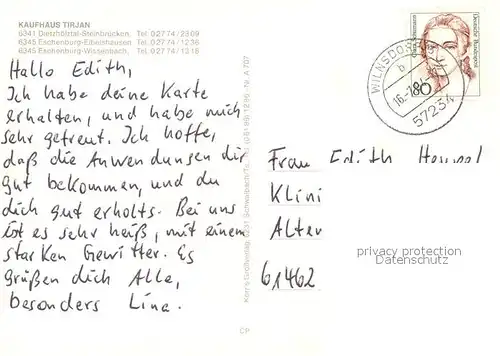 KAUFHAUS TIRJAN
6341 Dietzhölztal-Steinbrücken, Tel. 0 27 74 / 23 09
6345 Eschenburg-Eibelshausen Tel. 0 27 74 / 12 36
6345 Eschenburg-Wissenbach, Tel. 0 27 74 / 12 18
Hallo Edith,
Ich habe deine Karte
erhalten, und habe mich
sehr gefreut. Ich hoffe,
daß die Anwendungen dir
gut bekommen, und du
dich gut erholts. Bei uns
ist es sehr heiß, mit einem
starken Gewitter. Es
grüßen dich Alle,
besonders Lina.
CP
WILNSDORF
57234
80
Deutsche Bundespost
Frau Edith
Klini
Alter
61462
privacy protection
Datenschutz